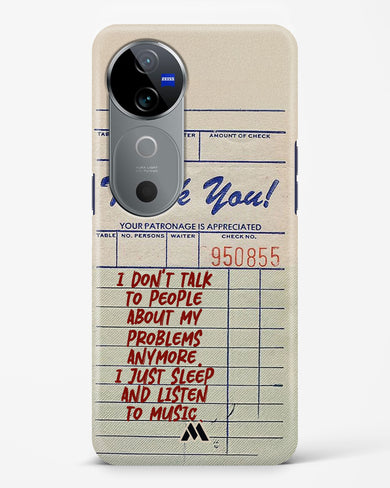 ZEISS
TAB
TER
AMOUNT OF CHECK
k You!
YOUR PATRONAGE IS APPRECIATED
TABLE NO. PERSONS WAITER CHECK NO.
950855
I DON'T TALK
TO PEOPLE
ABOUT MY
PROBLEMS
ANYMORE.
I JUST SLEEP
AND LISTEN
TO MUSIC